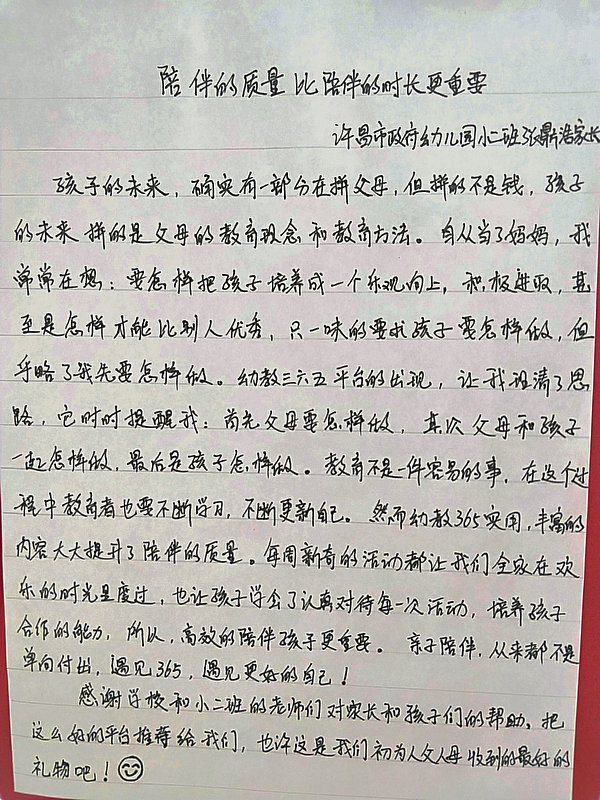 陪伴的质量比陪伴的时长更重要
许昌市政府幼儿园小二班张鼎浩家长
孩子的未来，确实有一部分在拼父母，但拼的不是钱，孩子
的未来拼的是父母的教育观念和教育方法。自从当了妈妈，我
常常在想：要怎样把孩子培养成一个乐观向上，积极进取，甚
至是怎样才能比别人优秀，只一味的要求孩子要怎样做，但
乎略了我先要怎样做。幼教三六五平台的出现，让我理清了思
路，它时时提醒我：首先父母要怎样做，其次父母和孩子
一起怎样做，最后是孩子怎样做。教育不是一件容易的事，在这个过
程中教育者也要不断学习，不断更新自己。然而幼教365实用，丰富的
内容大大提升了陪伴的质量。每周新奇的活动都让我们全家在欢
乐的时光里度过，也让孩子学会了认真对待每一次活动，培养孩子
合作的能力，所以，高效的陪伴孩子更重要。亲子陪伴，从来都不是
单向付出，遇见365，遇见更好的自己！
感谢学校和小二班的老师们对家长和孩子们的帮助，把
这么好的平台推荐给我们，也许这是我们初为人父人母收到的最好的
礼物吧！